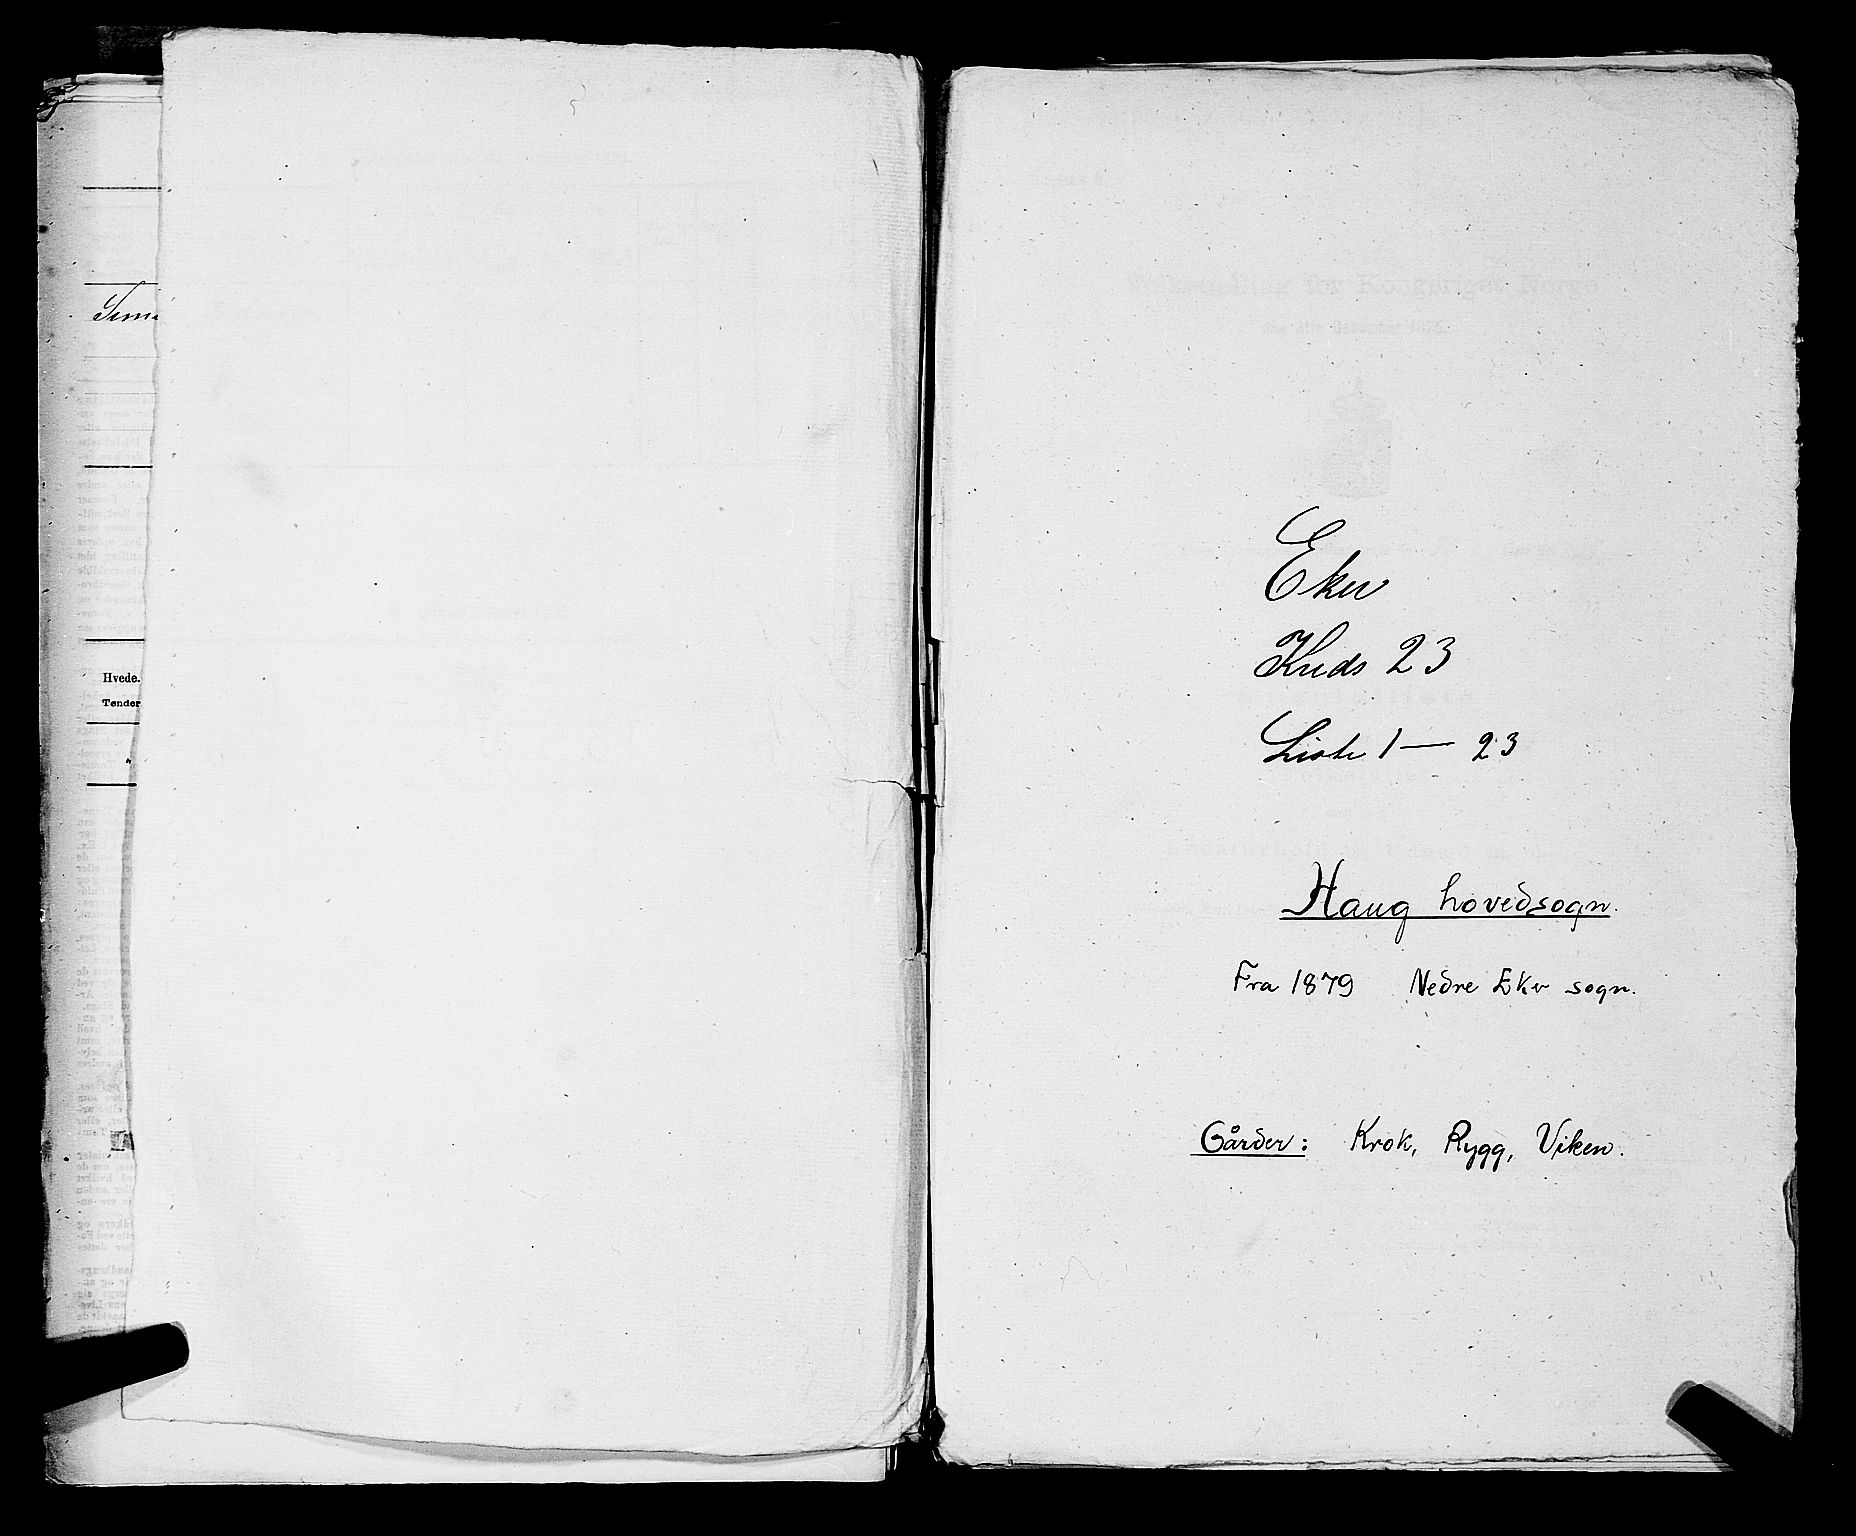 Hvede.
Tønder
Eker
Kreds 23
Liste 1 — 23
Haug hovedsogn.
Fra 1879 Nedre Eker sogn.
Gårder: Krok, Rygg, Viken.